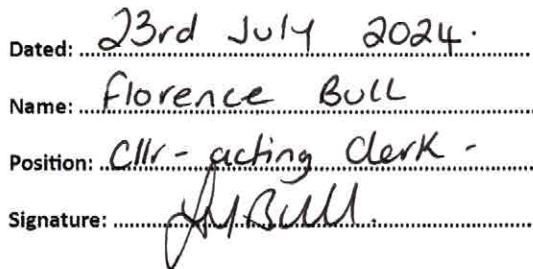 Dated: 23rd July 2024.
Name: Florence Bull
Position: Cllr - acting Clerk -
Signature: Bull.